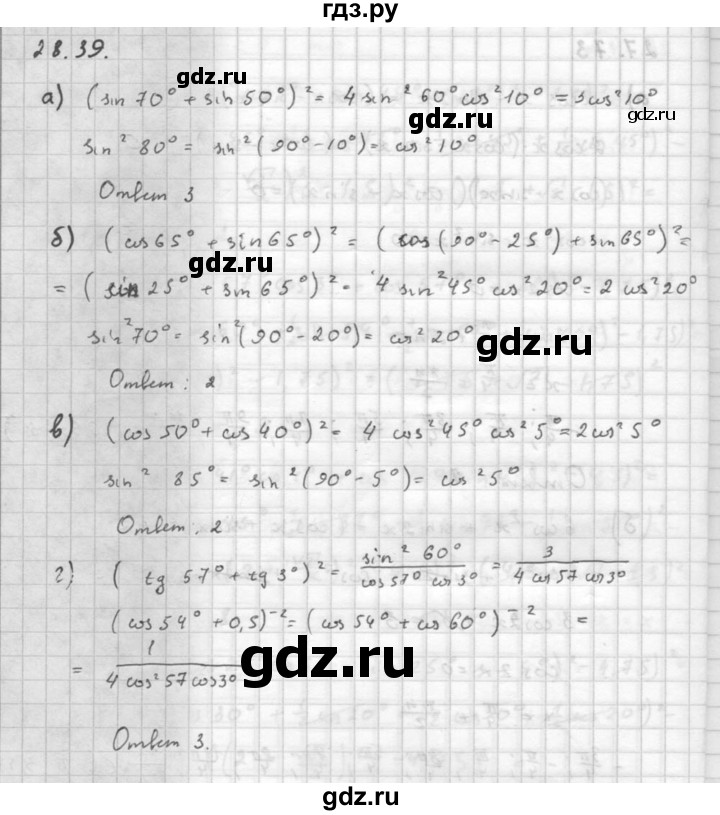 гдз.ру
28.39.
а) (sin 70° + sin 50°)² = 4 sin² 60° cos² 10° = 3 cos² 10°
gdz.ru
sin² 80° = sin² (90° - 10°) = cos² 10°
gdz.ru
Ответ 3
б) (cos 65° + sin 65°)² = (cos (90° - 25°) + sin 65°)² =
gdz.ru
= (sin 25° + sin 65°)² = 4 sin² 45° cos² 20° = 2 cos² 20°
sin² 70° = sin² (90° - 20°) = cos² 20°
gdz.ru
Ответ : 2
в) (cos 50° + cos 40°)² = 4 cos² 45° cos² 5° = 2 cos² 5°
sin² 85° = sin² (90° - 5°) = cos² 5°
gdz.ru
Ответ : 2
г) ( tg 57° + tg 3°)² = sin² 60° / cos 57° cos 3° = 3 / 4 cos 57 cos 3°
(cos 54° + 0,5)⁻² = (cos 54° + cos 60°)⁻² =
= 1 / 4 cos² 57 cos 3°
gdz.ru
Ответ 3.
gdz.ru
gdz.ru